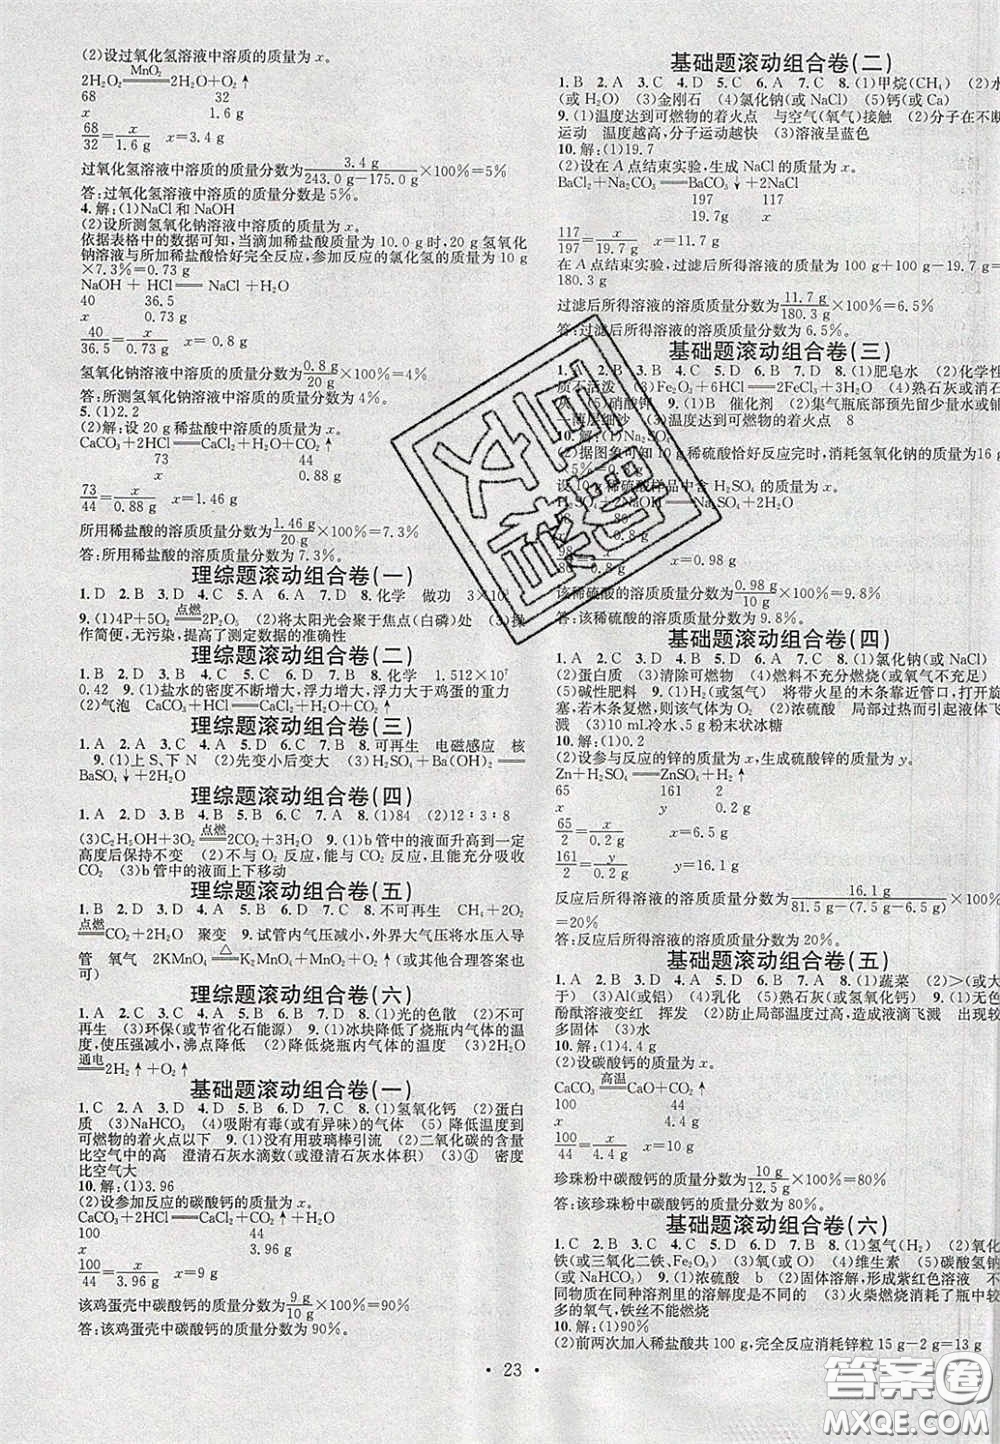 (2)设过氧化氢溶液中溶质的质量为x。
2H₂O₂ MnO₂ 2H₂O+O₂↑
68 32
x 1.6 g
68/32=x/1.6 g x=3.4 g
过氧化氢溶液中溶质的质量分数为3.4 g/(243.0 g-175.0 g)×100%=5%
答:过氧化氢溶液中溶质的质量分数是5%。
4.解:(1)NaCl和NaOH
(2)设所测氢氧化钠溶液中溶质的质量为x。
依据表格中的数据可知,当滴加稀盐酸质量为10.0 g时,20 g氢氧化
钠溶液与所加稀盐酸恰好完全反应,参加反应的氯化氢的质量为10 g
×7.3%=0.73 g
NaOH + HCl══NaCl+H₂O
40 36.5
x 0.73 g
40/36.5=x/0.73 g x=0.8 g
氢氧化钠溶液中溶质的质量分数为0.8 g/20 g×100%=4%
答:所测氢氧化钠溶液中溶质的质量分数为4%。
5.(1)2.2
(2)解:设20 g稀盐酸中溶质的质量为x。
CaCO₃+2HCl══CaCl₂+H₂O+CO₂↑
73 44
x 0.88 g
73/44=x/0.88 g x=1.46 g
所用稀盐酸的溶质质量分数为1.46 g/20 g×100%=7.3%
答:所用稀盐酸的溶质质量分数为7.3%。
理综题滚动组合卷(一)
1.D 2.B 3.C 4.A 5.B 6.D 7.D 8.化学 做功
9.(1)4P+5O₂ 点燃 2P₂O₅ (2)将太阳光会聚于焦点(白磷)处 (3)操
作简便,无污染,提高了测定数据的准确性
理综题滚动组合卷(二)
1.D 2.A 3.D 4.C 5.A 6.D 7.B 8.化学 1.512×10⁷
0.42 9.(1)盐水的密度不断增大,浮力增大,浮力大于鸡蛋的重力
(2)气泡 CaCO₃+2HCl══CaCl₂+H₂O+CO₂↑
理综题滚动组合卷(三)
1.A 2.A 3.C 4.B 5.D 6.A 7.B 8.可再生 电磁感应 核
9.(1)上S、下N (2)先变小后变大 (3)H₂SO₄+Ba(OH)₂══
BaSO₄↓+2H₂O
理综题滚动组合卷(四)
1.A 2.D 3.D 4.B 5.B 6.C 7.A 8.(1)84 (2)12∶3∶8
(3)C₂H₅OH+3O₂ 点燃 2CO₂+3H₂O 9.(1)b管中的液面升高到一定
高度后保持不变 (2)不与O₂反应,能与CO₂反应,且能充分吸收
CO₂ (3)b管中的液面上下移动
理综题滚动组合卷(五)
1.B 2.D 3.A 4.C 5.D 6.B 7.C 8.不可再生 CH₄+2O₂
点燃 CO₂+2H₂O 聚变 9.试管内气压减小,外界大气压将水压入导
管 氧气 2KMnO₄ △ K₂MnO₄+MnO₂+O₂↑(或其他合理答案也
可)
理综题滚动组合卷(六)
1.A 2.C 3.A 4.D 5.B 6.D 7.C 8.(1)光的色散 (2)不可
再生 (3)环保(或节省化石能源) 9.(1)冰块降低了烧瓶内气体的温
度,使压强减小,沸点降低 (2)降低烧瓶内气体的温度 (3)2H₂O
通电 2H₂↑+O₂↑
基础题滚动组合卷(一)
1.C 2.A 3.D 4.B 5.D 6.D 7.D 8.(1)氢氧化钙 (2)蛋白
质 (3)NaHCO₃ (4)吸附有毒(或有异味)的气体 (5)降低温度到
可燃物的着火点以下 9.(1)没有用玻璃棒引流 (2)二氧化碳的含量
比空气中的高 澄清石灰水滴数(或澄清石灰水体积) (3)④ 密度
比空气大
10.解:(1)3.96
(2)设参加反应的碳酸钙的质量为x。
CaCO₃+2HCl══CaCl₂+H₂O+CO₂↑
100 44
x 3.96 g
100/44=x/3.96 g x=9 g
该鸡蛋壳中碳酸钙的质量分数为9 g/10 g×100%=90%
答:该鸡蛋壳中碳酸钙的质量分数为90%。
基础题滚动组合卷(二)
1.B 2.A 3.C 4.D 5.C 6.A 7.C 8.(1)甲烷(CH₄) (2)水
(或H₂O) (3)金刚石 (4)氯化钠(或NaCl) (5)钙(或Ca)
9.(1)温度达到可燃物的着火点 与空气(氧气)接触 (2)分子在不断
运动 温度越高,分子运动越快 (3)溶液呈蓝色
10.解:(1)19.7
(2)设在A点结束实验,生成NaCl的质量为x。
BaCl₂+Na₂CO₃══BaCO₃↓+2NaCl
197 117
19.7g x
117/197=x/19.7 g x=11.7 g
在A点结束实验,过滤后所得溶液的质量为100 g+100 g-19.7 g=
180.3 g
过滤后所得溶液的溶质质量分数为11.7 g/180.3 g×100%=6.5%
答:过滤后所得溶液的溶质质量分数为6.5%。
基础题滚动组合卷(三)
1.B 2.B 7.D 8.(1)肥皂水 (2)化学性
质不活泼 (3)Fe₂O₃+6HCl══2FeCl₃+3H₂O (4)熟石灰或消石
灰 (5)硝酸钾 9.(1)B 催化剂 (2)集气瓶底部预先留少量水或铺
一薄层细沙 (3)温度达到可燃物的着火点 8
10.解:(1)Na₂SO₄
(2)据图象可知10 g稀硫酸恰好反应完时,消耗氢氧化钠的质量为16 g
×5%=0.8 g
设10 g稀硫酸样品中含H₂SO₄的质量为x。
H₂SO₄+2NaOH══Na₂SO₄+2H₂O
98 80
x 0.8 g
98/80=x/0.8 g x=0.98 g
该稀硫酸的溶质质量分数为0.98 g/10 g×100%=9.8%
答:该稀硫酸的溶质质量分数为9.8%。
基础题滚动组合卷(四)
1.A 2.C 3.D 4.B 5.C 6.A 7.A 8.(1)氯化钠(或NaCl)
(2)蛋白质 (3)清除可燃物 (4)燃料不充分燃烧(或氧气不充足)
(5)碱性肥料 9.(1)H₂(或氢气) 将带火星的木条靠近管口,打开旋
塞,若木条复燃,则该气体为O₂ (2)浓硫酸 局部过热而引起液体飞
溅 (3)10 mL冷水、5 g粉末状冰糖
10.解:(1)0.2
(2)设参与反应的锌的质量为x,生成硫酸锌的质量为y。
Zn+H₂SO₄══ZnSO₄+H₂↑
65 161 2
x y 0.2 g
65/2=x/0.2 g x=6.5 g
161/2=y/0.2 g y=16.1 g
反应后所得溶液的溶质质量分数为16.1 g/(81.5 g-(7.5 g-6.5 g))×100%
=20%
答:反应后所得溶液的溶质质量分数为20%。
基础题滚动组合卷(五)
1.A 2.B 3.C 4.A 5.D 6.D 7.B 8.(1)蔬菜 (2)>(或大
于) (3)Al(或铝) (4)乳化 (5)熟石灰(或氢氧化钙) 9.(1)无色
酚酞溶液变红 挥发 (2)防止局部温度过高,造成液滴飞溅 出现较
多固体 (3)水
10.解:(1)4.4 g
(2)设碳酸钙的质量为x。
CaCO₃ 高温 CaO+CO₂↑
100 44
x 4.4 g
100/44=x/4.4 g x=10 g
珍珠粉中碳酸钙的质量分数为10 g/12.5 g×100%=80%
答:该珍珠粉中碳酸钙的质量分数为80%。
基础题滚动组合卷(六)
1.C 2.B 3.C 4.A 5.D 6.D 7.B 8.(1)氢气(H₂) (2)氧化
铁(或三氧化二铁、Fe₂O₃) (3)氧(或O) (4)维生素 (5)碳酸氢钠
(或NaHCO₃) 9.(1)浓硫酸 b (2)固体溶解,形成紫红色溶液 不
同物质在同种溶剂里的溶解度是不同的 (3)火柴燃烧消耗了瓶中较
多的氧气,铁丝不能燃烧
10.解:(1)90%
(2)前两次加入稀盐酸共100 g,完全反应消耗锌粒15 g-2 g=13 g
• 23 •
答案圈
MXQE.COM